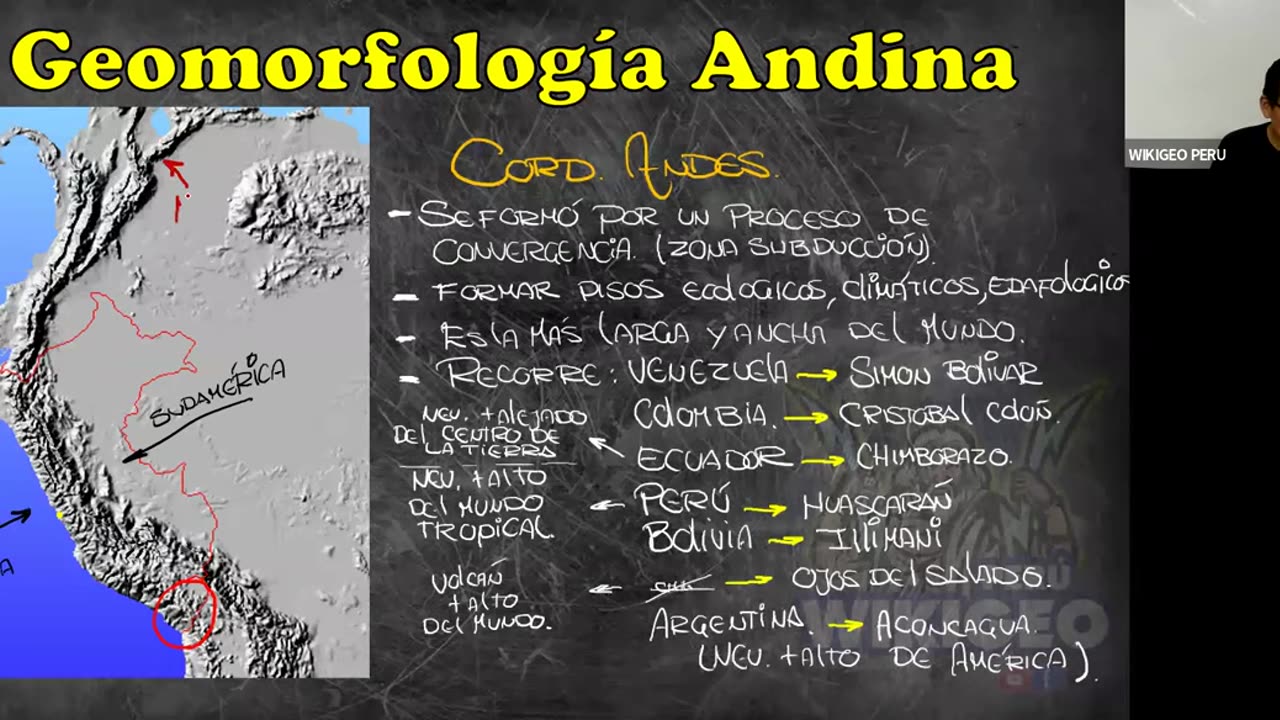 Geomorfología Andina
WIKIGEO PERU
CORD. ANDES.
- SE FORMÓ POR UN PROCESO DE
CONVERGENCIA. (ZONA SUBDUCCIÓN).
- FORMAR PISOS ECOLOGICOS, CLIMÁTICOS, EDAFOLOGICOS
- ES LA MÁS LARGA Y ANCHA DEL MUNDO.
- RECORRE: VENEZUELA → SIMON BOLIVAR
COLOMBIA. → CRISTOBAL COLON.
NEV. + ALEJADO
DEL CENTRO DE
LA TIERRA
ECUADOR → CHIMBORAZO.
NEV. + ALTO
DEL MUNDO
TROPICAL.
PERÚ → HUASCARAN
BOLIVIA → ILLIMANI
VOLCAN
+ ALTO
DEL MUNDO.
→ OJOS DEL SALADO.
ARGENTINA. → ACONCAGUA.
(NEV. + ALTO DE AMÉRICA).
SUDAMÉRICA
A
PERÚ
WIKIGEO